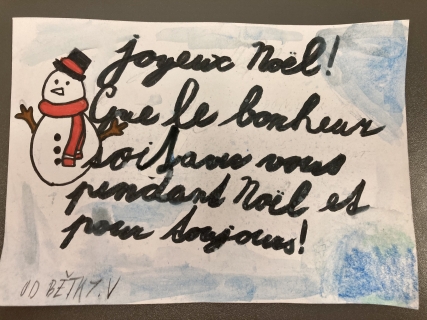 joyeux Noël!
Que le bonheur
soit avec vous
pendant Noël et
pour toujours!
OD BĚTKY.V